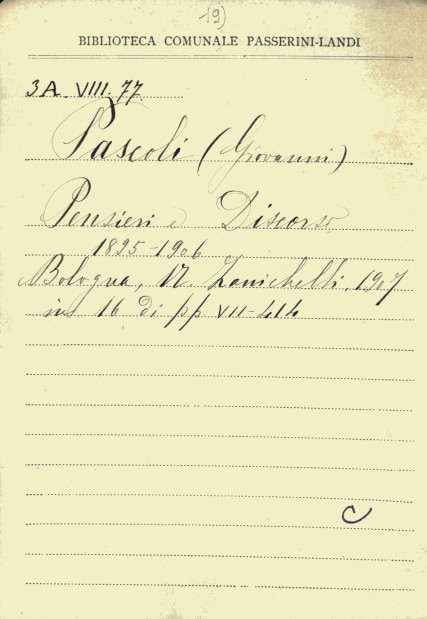 19)
BIBLIOTECA COMUNALE PASSERINI-LANDI
3A. VIII. 77.
Pascoli (Giovanni)
Pensieri e Discorsi
1895-1906
Bologna, N. Zanichelli, 1907
in 16 di pp VII-414
C